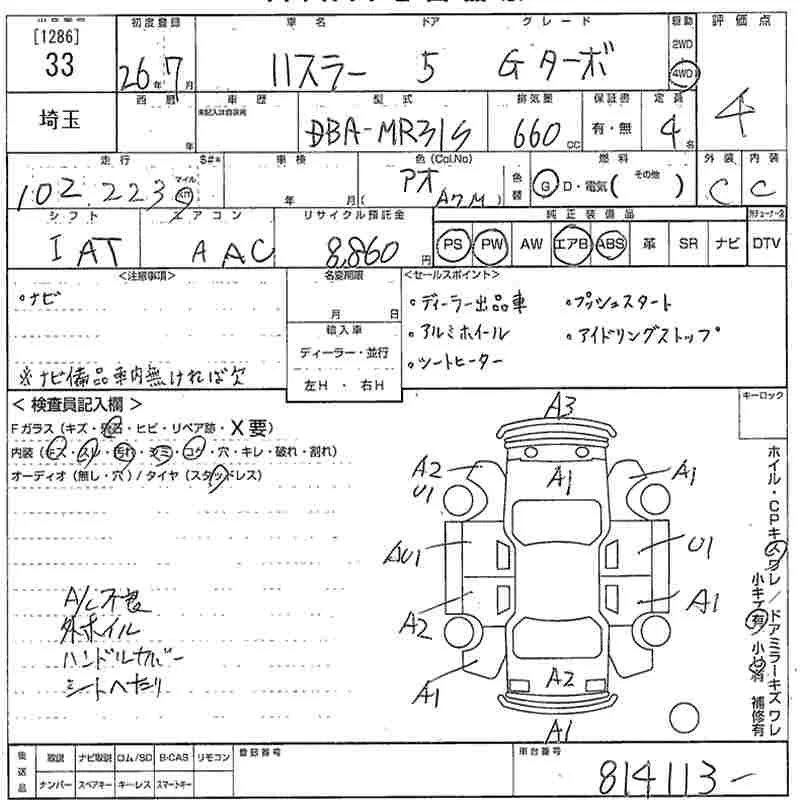 初度登録 車名 ドア グレード 駆動 評価点
[1286]
33
26年 7月 ハスラー 5 Gターボ 2WD 4WD 4
埼玉 西暦 車歴 型式 排気量 保証書 定員
未記入は自家用
年 DBA-MR31S 660 CC 有・無 4名
走行 S#* 車検 色(Col.No) 色替 燃料 外装 内装
102,223 マイル Km 年 月 アオ ( ) G D・電気( その他 ) C C
シフト エアコン リサイクル預託金 純正装備品
I AT AAC 8,860円 PS PW AW エアB ABS 革 SR ナビ DTV
<注意事項> 名変期限 <セールスポイント>
・ナビ 月 日 ・ディーラー出品車 ・プッシュスタート
輸入車 ・アルミホイール ・アイドリングストップ
ディーラー・並行 ・シートヒーター
※ナビ備品車内無ければ欠 左H・右H
<検査員記入欄> キーロック
Fガラス(キズ・飛石・ヒビ・リペア跡・X要)
内装(キズ・スレ・汚れ・シミ・コゲ・穴・キレ・破れ・割れ)
オーディオ(無し・穴)/タイヤ(スタッドレス)
A3
A2 A1 A1
U1
AU1 U1
A2 A1
A1 A2
A1
ホイル・CPキズワレ/ドアミラーキズワレ
小キズ有 補修有
A/C不良
外ホイル
ハンドルカバー
シートヘタリ
後送品 取説 ナビ取説 ロム/SD B-CAS リモコン 登録番号 車台番号
ナンバー スペアキー キーレス スマートキー 814113-